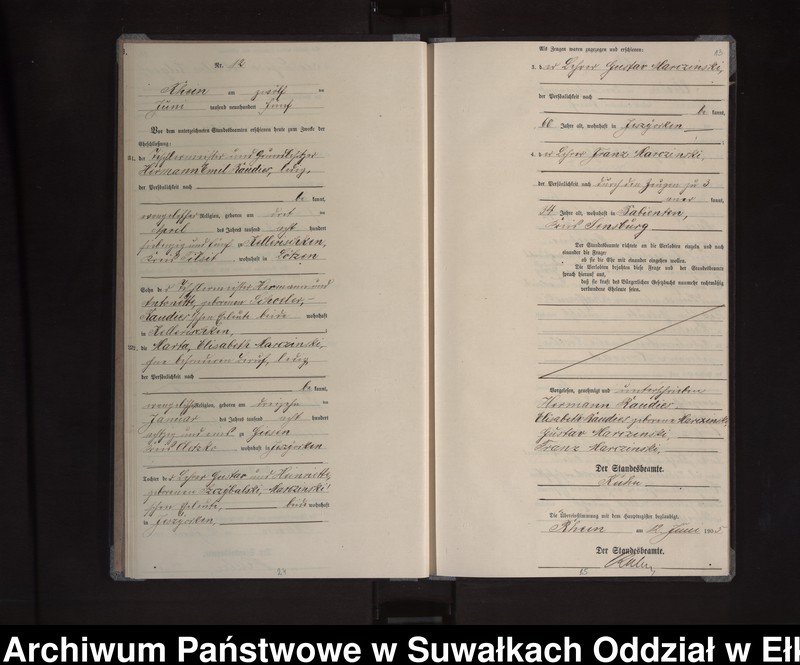 Nr. 12
Rhein am zwölf ten
Juni tausend neunhundert fünf
Vor dem unterzeichneten Standesbeamten erschienen heute zum Zwecke der
Eheschließung:
1. der Tischlermeister und Grundbesitzer
Hermann Emil Raudies, ledig,
der Persönlichkeit nach
be kannt,
evangelischer Religion, geboren am drei ten
April des Jahres tausend acht hundert
siebenzig und fünf zu Kellerischken,
Kreis Tilsit, wohnhaft in Lötzen
Sohn des Tischlermeister Hermann und
geborenen
Raudies schen Eheleute beide wohnhaft
in Kellerischken,
2. die Marta, Elisabeth Marczinski,
ohne besonderen Beruf, ledig,
der Persönlichkeit nach
be kannt,
evangelischer Religion, geboren am
Januar des Jahres tausend acht hundert
achtzig und zu
Kreis wohnhaft in Jesziorken
Tochter des Lehrer Gustav und Henriette,
geborenen Marczinski
schen Eheleute, beide wohnhaft
in Jesziorken,
83
Als Zeugen waren zugezogen und erschienen:
3. der Lehrer Gustav Marczinski,
der Persönlichkeit nach
be kannt,
60 Jahre alt, wohnhaft in Jesziorken,
4. der Lehrer Franz Marczinski,
der Persönlichkeit nach durch den Zeugen zu 3
aner kannt,
24 Jahre alt, wohnhaft in Babienten,
Kreis Sensburg
Der Standesbeamte richtete an die Verlobten einzeln und nach
einander die Frage:
ob sie die Ehe mit einander eingehen wollen.
Die Verlobten bejahten diese Frage und der Standesbeamte
sprach hierauf aus,
daß sie kraft des Bürgerlichen Gesetzbuchs nunmehr rechtmäßig
verbundene Eheleute seien.
Vorgelesen, genehmigt und unterschrieben
Hermann Raudies
Elisabeth Raudies geborene Marczinski
Gustav Marczinski,
Franz Marczinski,
Der Standesbeamte.
Kuhn
Die Übereinstimmung mit dem Hauptregister beglaubigt.
Rhein am 12. Juni 1905.
Der Standesbeamte.
Kuhn,
24
25
Archiwum Państwowe w Suwałkach Oddział w Eł